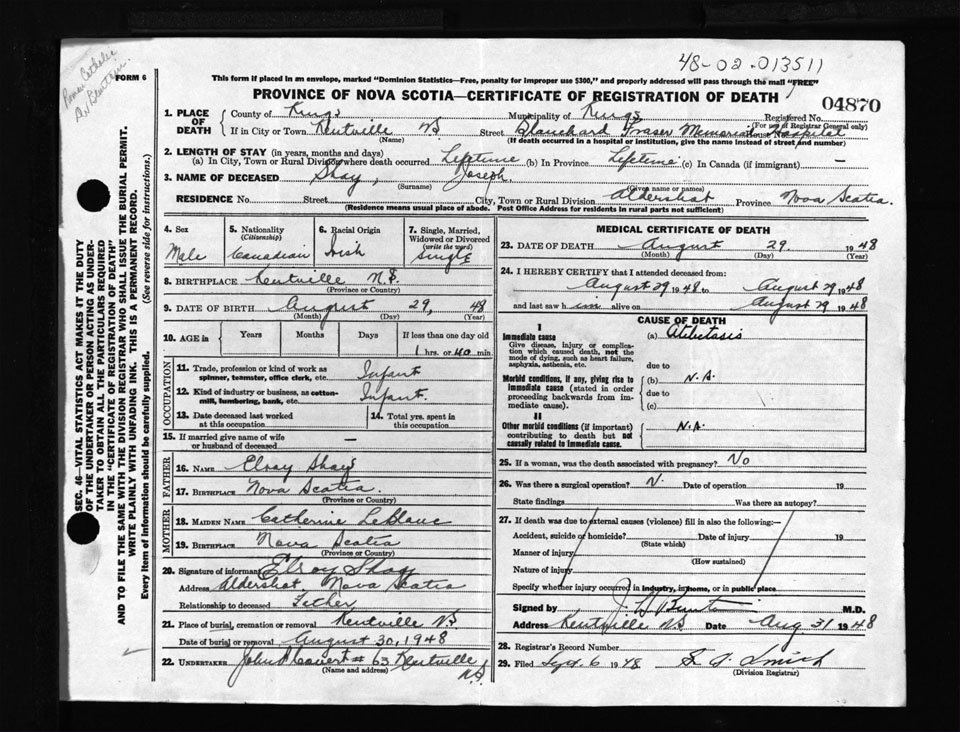 48-02-013511
Roman Catholic
FORM 6
This form if placed in an envelope, marked "Dominion Statistics—Free, penalty for improper use $300," and properly addressed will pass through the mail "FREE"
PROVINCE OF NOVA SCOTIA—CERTIFICATE OF REGISTRATION OF DEATH
04870
1. PLACE OF DEATH
County of Kings Municipality of Kings Registered No.
(For use of Registrar General only)
If in City or Town Kentville NS Street Blanchard Fraser Memorial Hospital House No.
(Name) (If death occurred in a hospital or institution, give the name instead of street and number)
2. LENGTH OF STAY (in years, months and days)
(a) In City, Town or Rural Division where death occurred Lifetime (b) In Province Lifetime (c) In Canada (if immigrant) —
3. NAME OF DECEASED Shay, Joseph
(Surname) (Given name or names)
RESIDENCE No. Street City, Town or Rural Division Aldershot Province Nova Scotia.
(Residence means usual place of abode. Post Office Address for residents in rural parts not sufficient)
4. Sex Male
5. Nationality (Citizenship) Canadian
6. Racial Origin Irish
7. Single, Married, Widowed or Divorced (write the word) Single
8. BIRTHPLACE Kentville N.S.
(Province or Country)
9. DATE OF BIRTH August 29, 48
(Month) (Day) (Year)
10. AGE in Years Months Days If less than one day old
1 hrs. or 40 min.
OCCUPATION
11. Trade, profession or kind of work as spinner, teamster, office clerk, etc. Infant
12. Kind of industry or business, as cotton-mill, lumbering, bank, etc. Infant.
13. Date deceased last worked at this occupation
14. Total yrs. spent in this occupation
15. If married give name of wife or husband of deceased —
FATHER
16. NAME Elroy Shay
17. BIRTHPLACE Nova Scotia.
(Province or Country)
MOTHER
18. MAIDEN NAME Catherine LeBlanc
19. BIRTHPLACE Nova Scotia
(Province or Country)
20. Signature of informant Elroy Shay
Address Aldershot Nova Scotia
Relationship to deceased Father
21. Place of burial, cremation or removal Kentville NS
Date of burial or removal August 30, 1948
22. UNDERTAKER John # 63 Kentville N.S.
(Name and address)
MEDICAL CERTIFICATE OF DEATH
23. DATE OF DEATH August 29. 1948
(Month) (Day) (Year)
24. I HEREBY CERTIFY that I attended deceased from:
August 29 1948 to August 29 1948
and last saw him alive on August 29 1948
CAUSE OF DEATH
I
Immediate cause
Give disease, injury or complication which caused death, not the mode of dying, such as heart failure, asphyxia, asthenia, etc.
(a) Atelectasis
due to
Morbid conditions, if any, giving rise to immediate cause (stated in order proceeding backwards from immediate cause).
(b) N.A.
due to
(c)
II
Other morbid conditions (if important) contributing to death but not causally related to immediate cause.
N.A.
25. If a woman, was the death associated with pregnancy? No
26. Was there a surgical operation? N. Date of operation 19
State findings Was there an autopsy?
27. If death was due to external causes (violence) fill in also the following:—
Accident, suicide or homicide? Date of injury 19
(State which)
Manner of injury
(How sustained)
Nature of injury
Specify whether injury occurred in industry, in home, or in public place
Signed by M.D.
Address Kentville NS Date Aug 31 1948
28. Registrar's Record Number
29. Filed Sept. 6 1948 Smith
(Division Registrar)
SEC. 46—VITAL STATISTICS ACT MAKES IT THE DUTY OF THE UNDERTAKER OR PERSON ACTING AS UNDERTAKER TO OBTAIN ALL THE PARTICULARS REQUIRED IN THE "CERTIFICATE OF REGISTRATION OF DEATH"
AND TO FILE THE SAME WITH THE DIVISION REGISTRAR WHO SHALL ISSUE THE BURIAL PERMIT.
WRITE PLAINLY WITH UNFADING INK. THIS IS A PERMANENT RECORD.
Every item of information should be carefully supplied. (See reverse side for instructions.)